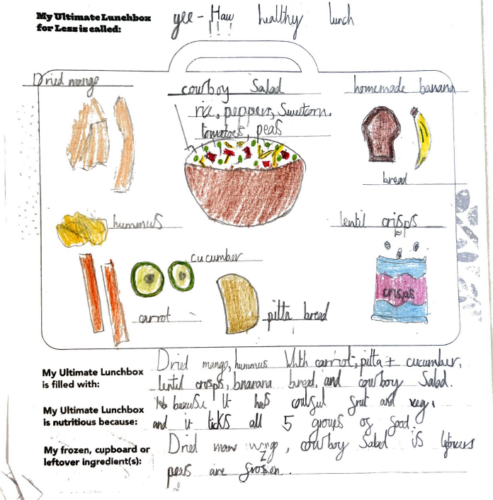 My Ultimate Lunchbox
for Less is called:
yee-Haw healthy lunch
Dried mango
cowboy Salad
homemade banana
rice, peppers, Sweetcorn,
tomatoes, peas
bread
hummus
lentil crisps
cucumber
crisps
carrot
pitta bread
My Ultimate Lunchbox
is filled with:
Dried mango, hummus With carrot, pitta + cucumber,
lentil crisps, bnanana bread, and cowboy Salad.
My Ultimate Lunchbox
is nutritious because:
because It has fruit and veg,
and it ticks all 5 groups of food
My frozen, cupboard or
leftover ingredient(s):
Dried mango, cowboy Salad is
peas are frozen.